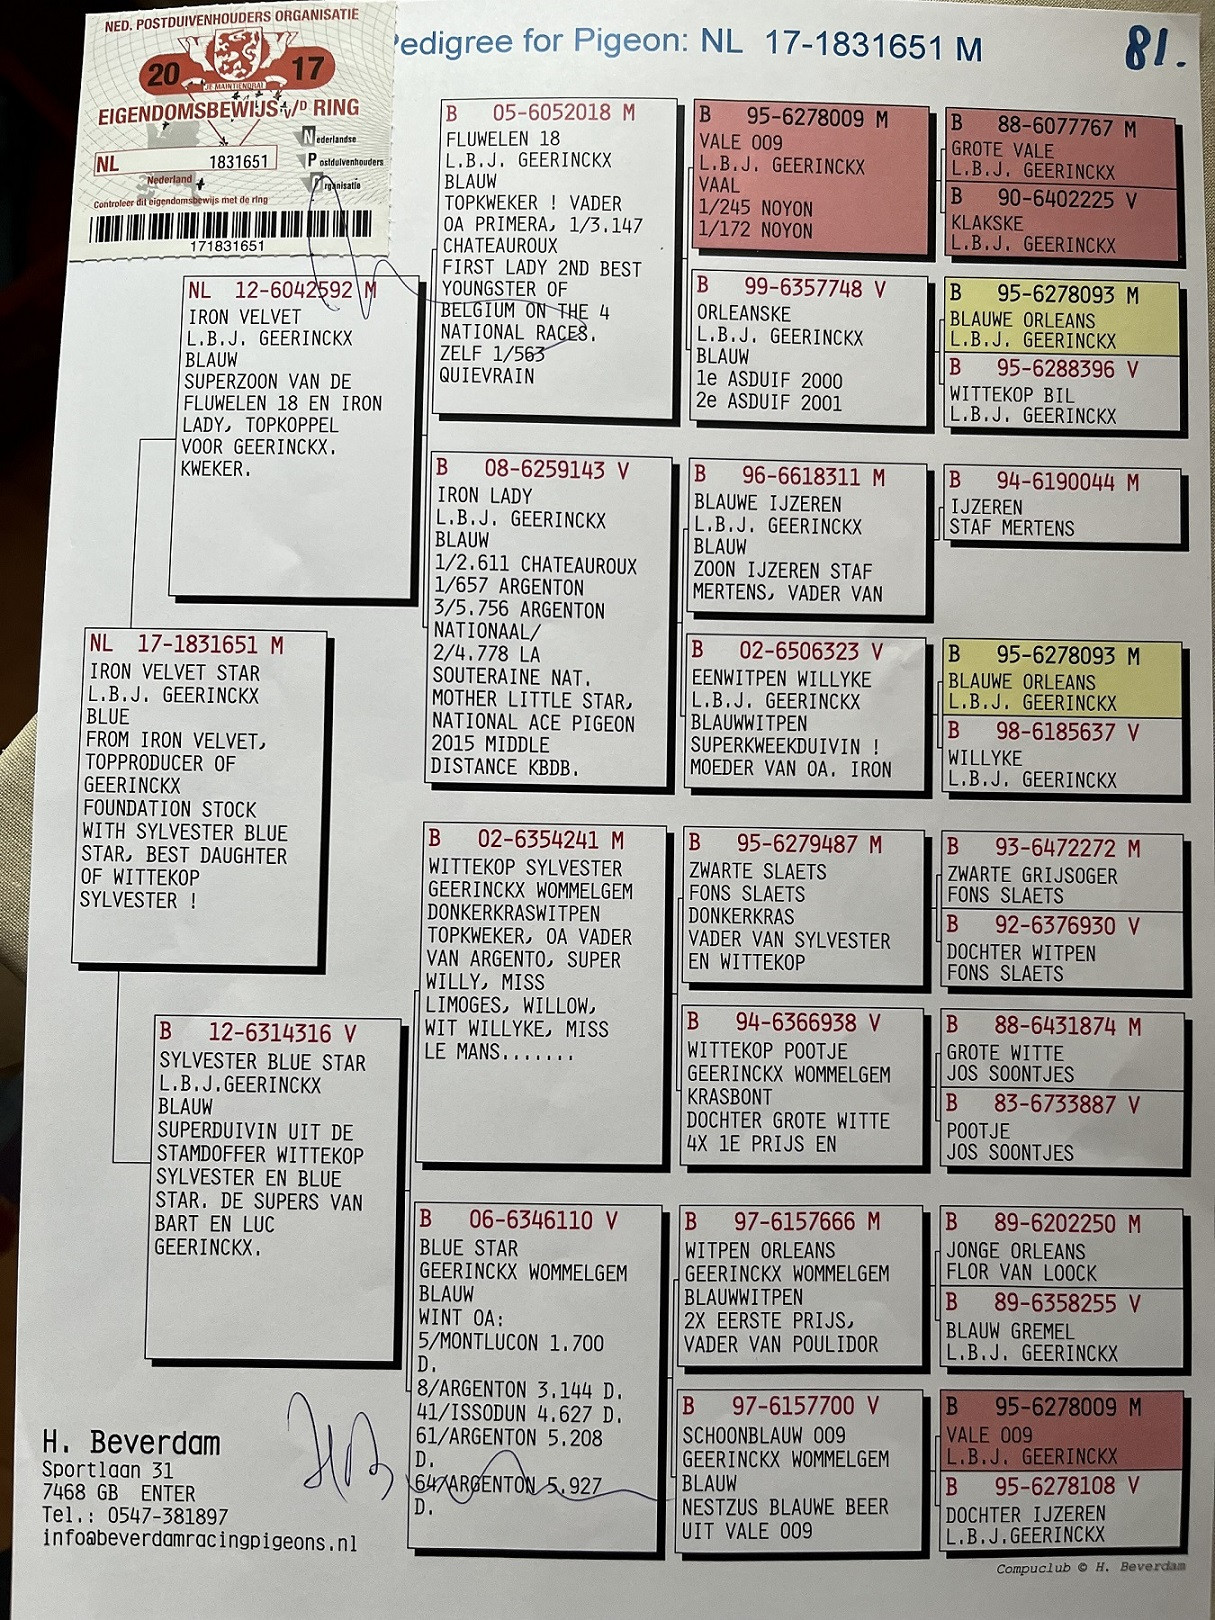 NED. POSTDUIVENHOUDERS ORGANISATIE
20 17
JE MAINTIENDRAI
EIGENDOMSBEWIJS v/D RING
NL 1831651
Nederland
Nederlandse
Postduivenhouders
Organisatie
Controleer dit eigendomsbewijs met de ring
171831651
Pedigree for Pigeon: NL 17-1831651 M
81.
NL 17-1831651 M
IRON VELVET STAR
L.B.J. GEERINCKX
BLUE
FROM IRON VELVET,
TOPPRODUCER OF
GEERINCKX
FOUNDATION STOCK
WITH SYLVESTER BLUE
STAR, BEST DAUGHTER
OF WITTEKOP
SYLVESTER !
NL 12-6042592 M
IRON VELVET
L.B.J. GEERINCKX
BLAUW
SUPERZOON VAN DE
FLUWELEN 18 EN IRON
LADY, TOPKOPPEL
VOOR GEERINCKX.
KWEKER.
B 12-6314316 V
SYLVESTER BLUE STAR
L.B.J.GEERINCKX
BLAUW
SUPERDUIVIN UIT DE
STAMDOFFER WITTEKOP
SYLVESTER EN BLUE
STAR. DE SUPERS VAN
BART EN LUC
GEERINCKX.
B 05-6052018 M
FLUWELEN 18
L.B.J. GEERINCKX
BLAUW
TOPKWEKER ! VADER
OA PRIMERA, 1/3.147
CHATEAUROUX
FIRST LADY 2ND BEST
YOUNGSTER OF
BELGIUM ON THE 4
NATIONAL RACES.
ZELF 1/563
QUIEVRAIN
B 08-6259143 V
IRON LADY
L.B.J. GEERINCKX
BLAUW
1/2.611 CHATEAUROUX
1/657 ARGENTON
3/5.756 ARGENTON
NATIONAAL/
2/4.778 LA
SOUTERAINE NAT.
MOTHER LITTLE STAR,
NATIONAL ACE PIGEON
2015 MIDDLE
DISTANCE KBDB.
B 02-6354241 M
WITTEKOP SYLVESTER
GEERINCKX WOMMELGEM
DONKERKRASWITPEN
TOPKWEKER, OA VADER
VAN ARGENTO, SUPER
WILLY, MISS
LIMOGES, WILLOW,
WIT WILLYKE, MISS
LE MANS.......
B 06-6346110 V
BLUE STAR
GEERINCKX WOMMELGEM
BLAUW
WINT OA:
5/MONTLUCON 1.700
D.
8/ARGENTON 3.144 D.
41/ISSODUN 4.627 D.
61/ARGENTON 5.208
D.
64/ARGENTON 5.927
D.
B 95-6278009 M
VALE 009
L.B.J. GEERINCKX
VAAL
1/245 NOYON
1/172 NOYON
B 99-6357748 V
ORLEANSKE
L.B.J. GEERINCKX
BLAUW
1e ASDUIF 2000
2e ASDUIF 2001
B 96-6618311 M
BLAUWE IJZEREN
L.B.J. GEERINCKX
BLAUW
ZOON IJZEREN STAF
MERTENS, VADER VAN
B 02-6506323 V
EENWITPEN WILLYKE
L.B.J. GEERINCKX
BLAUWWITPEN
SUPERKWEEKDUIVIN !
MOEDER VAN OA. IRON
B 95-6279487 M
ZWARTE SLAETS
FONS SLAETS
DONKERKRAS
VADER VAN SYLVESTER
EN WITTEKOP
B 94-6366938 V
WITTEKOP POOTJE
GEERINCKX WOMMELGEM
KRASBONT
DOCHTER GROTE WITTE
4X 1E PRIJS EN
B 97-6157666 M
WITPEN ORLEANS
GEERINCKX WOMMELGEM
BLAUWWITPEN
2X EERSTE PRIJS,
VADER VAN POULIDOR
B 97-6157700 V
SCHOONBLAUW 009
GEERINCKX WOMMELGEM
BLAUW
NESTZUS BLAUWE BEER
UIT VALE 009
B 88-6077767 M
GROTE VALE
L.B.J. GEERINCKX
B 90-6402225 V
KLAKSKE
L.B.J. GEERINCKX
B 95-6278093 M
BLAUWE ORLEANS
L.B.J. GEERINCKX
B 95-6288396 V
WITTEKOP BIL
L.B.J. GEERINCKX
B 94-6190044 M
IJZEREN
STAF MERTENS
B 95-6278093 M
BLAUWE ORLEANS
L.B.J. GEERINCKX
B 98-6185637 V
WILLYKE
L.B.J. GEERINCKX
B 93-6472272 M
ZWARTE GRIJSOGER
FONS SLAETS
B 92-6376930 V
DOCHTER WITPEN
FONS SLAETS
B 88-6431874 M
GROTE WITTE
JOS SOONTJES
B 83-6733887 V
POOTJE
JOS SOONTJES
B 89-6202250 M
JONGE ORLEANS
FLOR VAN LOOCK
B 89-6358255 V
BLAUW GREMEL
L.B.J. GEERINCKX
B 95-6278009 M
VALE 009
L.B.J. GEERINCKX
B 95-6278108 V
DOCHTER IJZEREN
L.B.J.GEERINCKX
H. Beverdam
Sportlaan 31
7468 GB ENTER
Tel.: 0547-381897
info@beverdamracingpigeons.nl
Compuclub © H. Beverdam